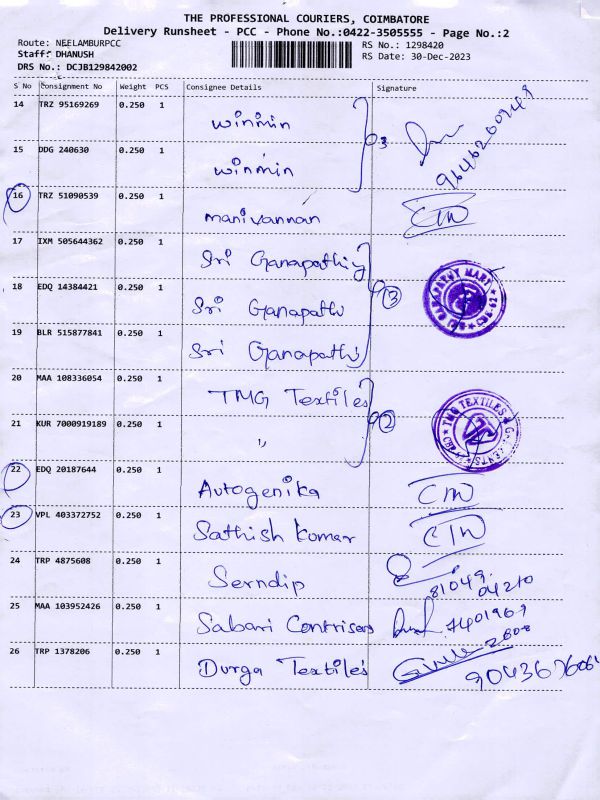 THE PROFESSIONAL COURIERS, COIMBATORE
Delivery Runsheet - PCC - Phone No.:0422-3505555 - Page No.:2
Route: NEELAMBURPCC RS No.: 1298420
Staff: DHANUSH RS Date: 30-Dec-2023
DRS No.: DCJB129842002
S No Consignment No Weight PCS Consignee Details Signature
14 TRZ 95169269 0.250 1 winmin
15 DDG 240630 0.250 1 winmin 3
16 TRZ 51090539 0.250 1 manivannan
17 IXM 505644362 0.250 1 Sri Ganapathiy
18 EDQ 14384421 0.250 1 Sri Ganapathi 3
19 BLR 515877841 0.250 1 Sri Ganapathi
20 MAA 108336054 0.250 1 TMG Textiles
21 KUR 7000919189 0.250 1 " 2 TMG TEXTILES
22 EDQ 20187644 0.250 1 Autogenika
23 VPL 403372752 0.250 1 Sathish Kumar
24 TRP 4875608 0.250 1 Serndip 81049 04210
25 MAA 103952426 0.250 1 Sabari
26 TRP 1378206 0.250 1 Durga Textiles